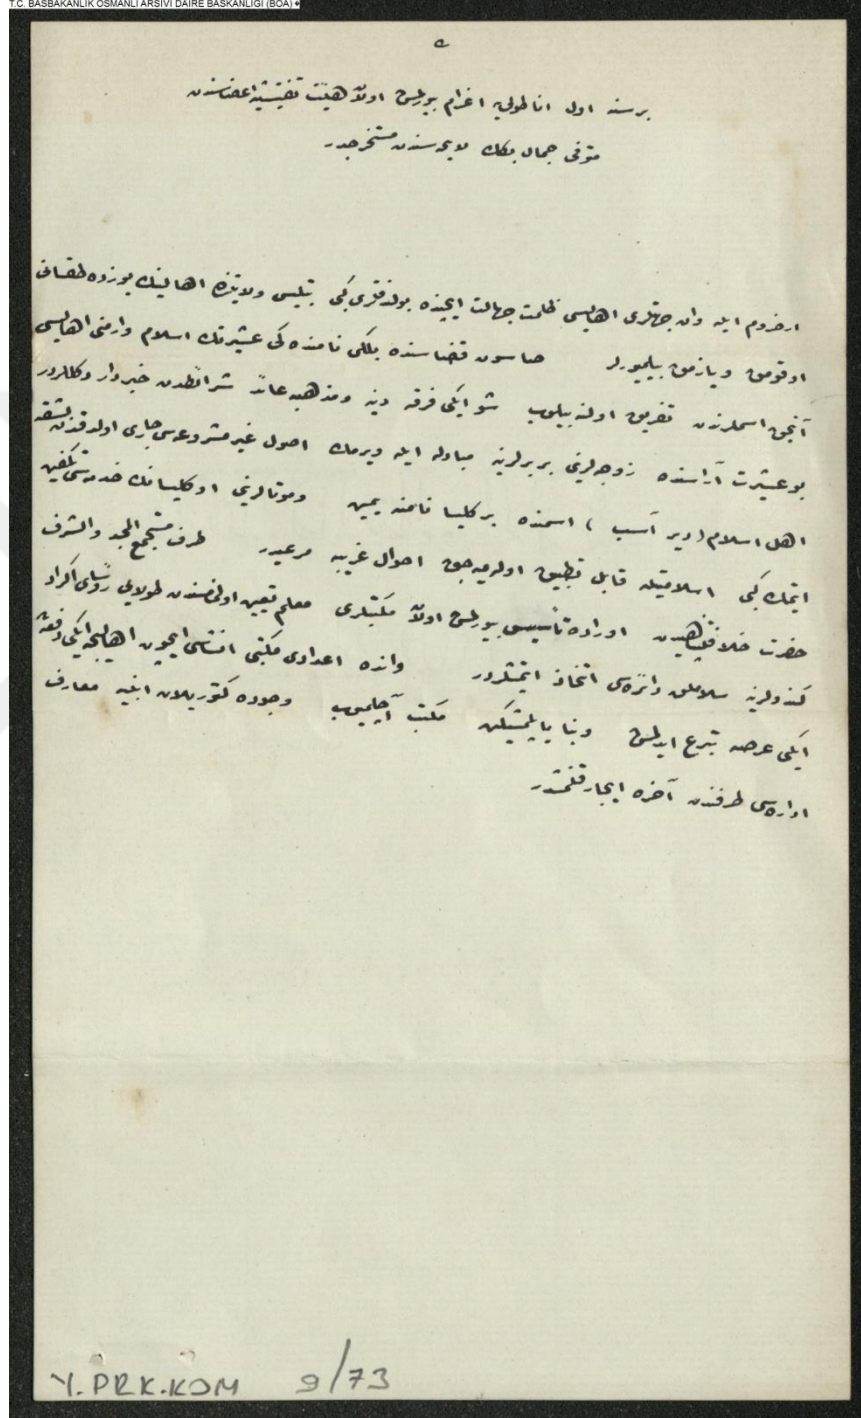 T.C. BASBAKANLIK OSMANLI ARSIVI DAIRE BASKANLIGI (BOA)
بر سنه اول اناطولی‌یه اعزام بیورلمش اولان هیئت تفتیشیه اعضاسندن
متوفی جمال بكك لایحه‌سندن مستخرجدر
ارضروم ایله وان جهتلری اهالیسی ظلمت جهالت ایچنده بولندقلری كبی بتلیس ولایتنك اهالیسنك یوزده طقسانی
اوقومق ویازمق بیلمیورلر صاسون قضاسنده بلكی نامنده‌كی عشیرتك اسلام وارمنی اهالیسی
آنجق اسملرندن تفریق اولنه‌بیلوب شو ایكی فرقه دینه ومذهبه عائد شرائطدن خبردار دكللردر
بو عشیرت آراسنده زوجه‌لرینی بربرلرینه مبادله ایله ویرمك اصول غیر مشروعه‌سی جاری اولدقدن بشقه
اهل اسلام (دیر آسب) اسمنده بر كلیسا نامنه یمین وموتالرینی او كلیسانك خدمه‌سی تكفین
ایتمك كبی اسلامیتله قابل تطبیق اوله‌میه‌جق احوال غریبه مرعیدر طرف مستجمع المجد والشرف
حضرت خلافتپناهیدن اوراده تأسیس بیورلمش اولان مكتبلری معلم تعیین اولنمامسندن طولایی رؤسای اكراد
كندولرینه سلاملق دائره‌سی اتخاذ ایتمشلردر وانده اعدادی مكتبی انشاسی ایچون اهالیجه ایكی دفعه
ایكی عرصه تبرع ایدلمش وبنا یاپلمشیكن مكتب آچلمیوب وجوده كتوریلان ابنیه معارف
اداره‌سی طرفندن آخره ایجار قلنمشدر
Y.PRK.KOM 9/73